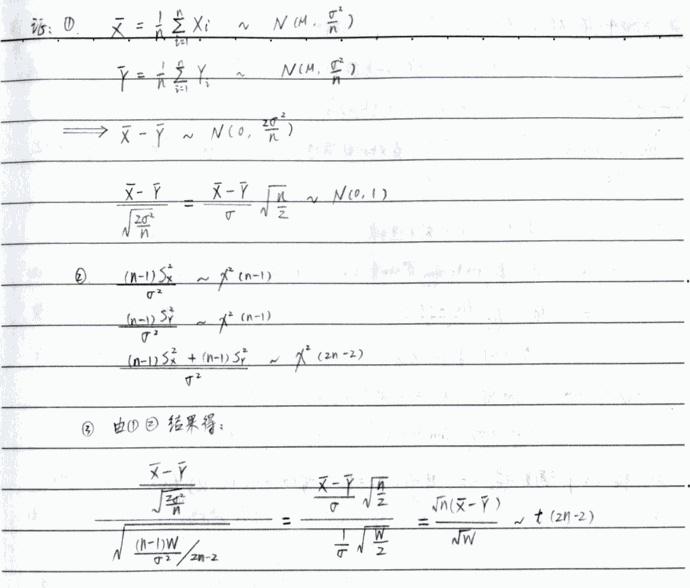 证: ① X̄ = 1/n ∑_{i=1}^{n} Xi ~ N(μ, σ²/n)
Ȳ = 1/n ∑_{i=1}^{n} Yi ~ N(μ, σ²/n)
⟹ X̄ - Ȳ ~ N(0, 2σ²/n)
(X̄ - Ȳ)/√(2σ²/n) = (X̄ - Ȳ)/σ √(n/2) ~ N(0,1)
② (n-1)S_X²/σ² ~ χ²(n-1)
(n-1)S_Y²/σ² ~ χ²(n-1)
((n-1)S_X² + (n-1)S_Y²)/σ² ~ χ²(2n-2)
③ 由①②结果得:
((X̄ - Ȳ)/√(2σ²/n))/√((n-1)W/σ² / 2n-2) = ((X̄ - Ȳ)/σ √(n/2))/(1/σ √(W/2)) = √n(X̄ - Ȳ)/√W ~ t(2n-2)